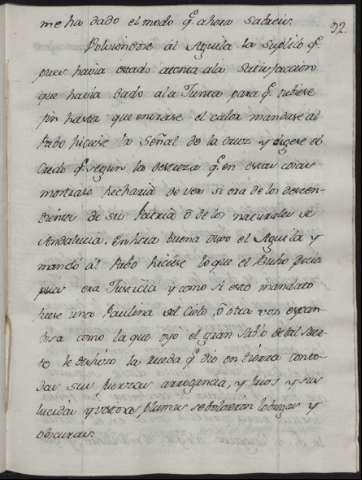 me ha dado el modo q.e ahora sabreis.
92
Volviendose al Aguila la suplicó q.e
pues havia estado atenta ala satisfaccion
que havia dado ala Junta para q.e tubiese
fin hasta que entrase el calor mandase al
Pabo hiciese la Señal de la cruz y digese el
Credo q.e segun la destreza q.e en estas cosas
mostrase hecharia de ver si era de los descen-
dientes de su Patria ó de los naturales de
Andalucia. Enhora buena dijo el Aguila y
mandó al Pabo hiciese lo que el Buho decia
pues era Justicia y como si esto mandato
fuese una Paulina del Cielo, ó otra voz espan-
tosa como la que oyó el gran Pabo de tal suer-
te le deshizo la rueda q.e dio en tierra con to-
das sus fuerzas arrogancia, y luces y sus
lucidas y vistosas plumas se bolvieron lobregas y
obscuras.